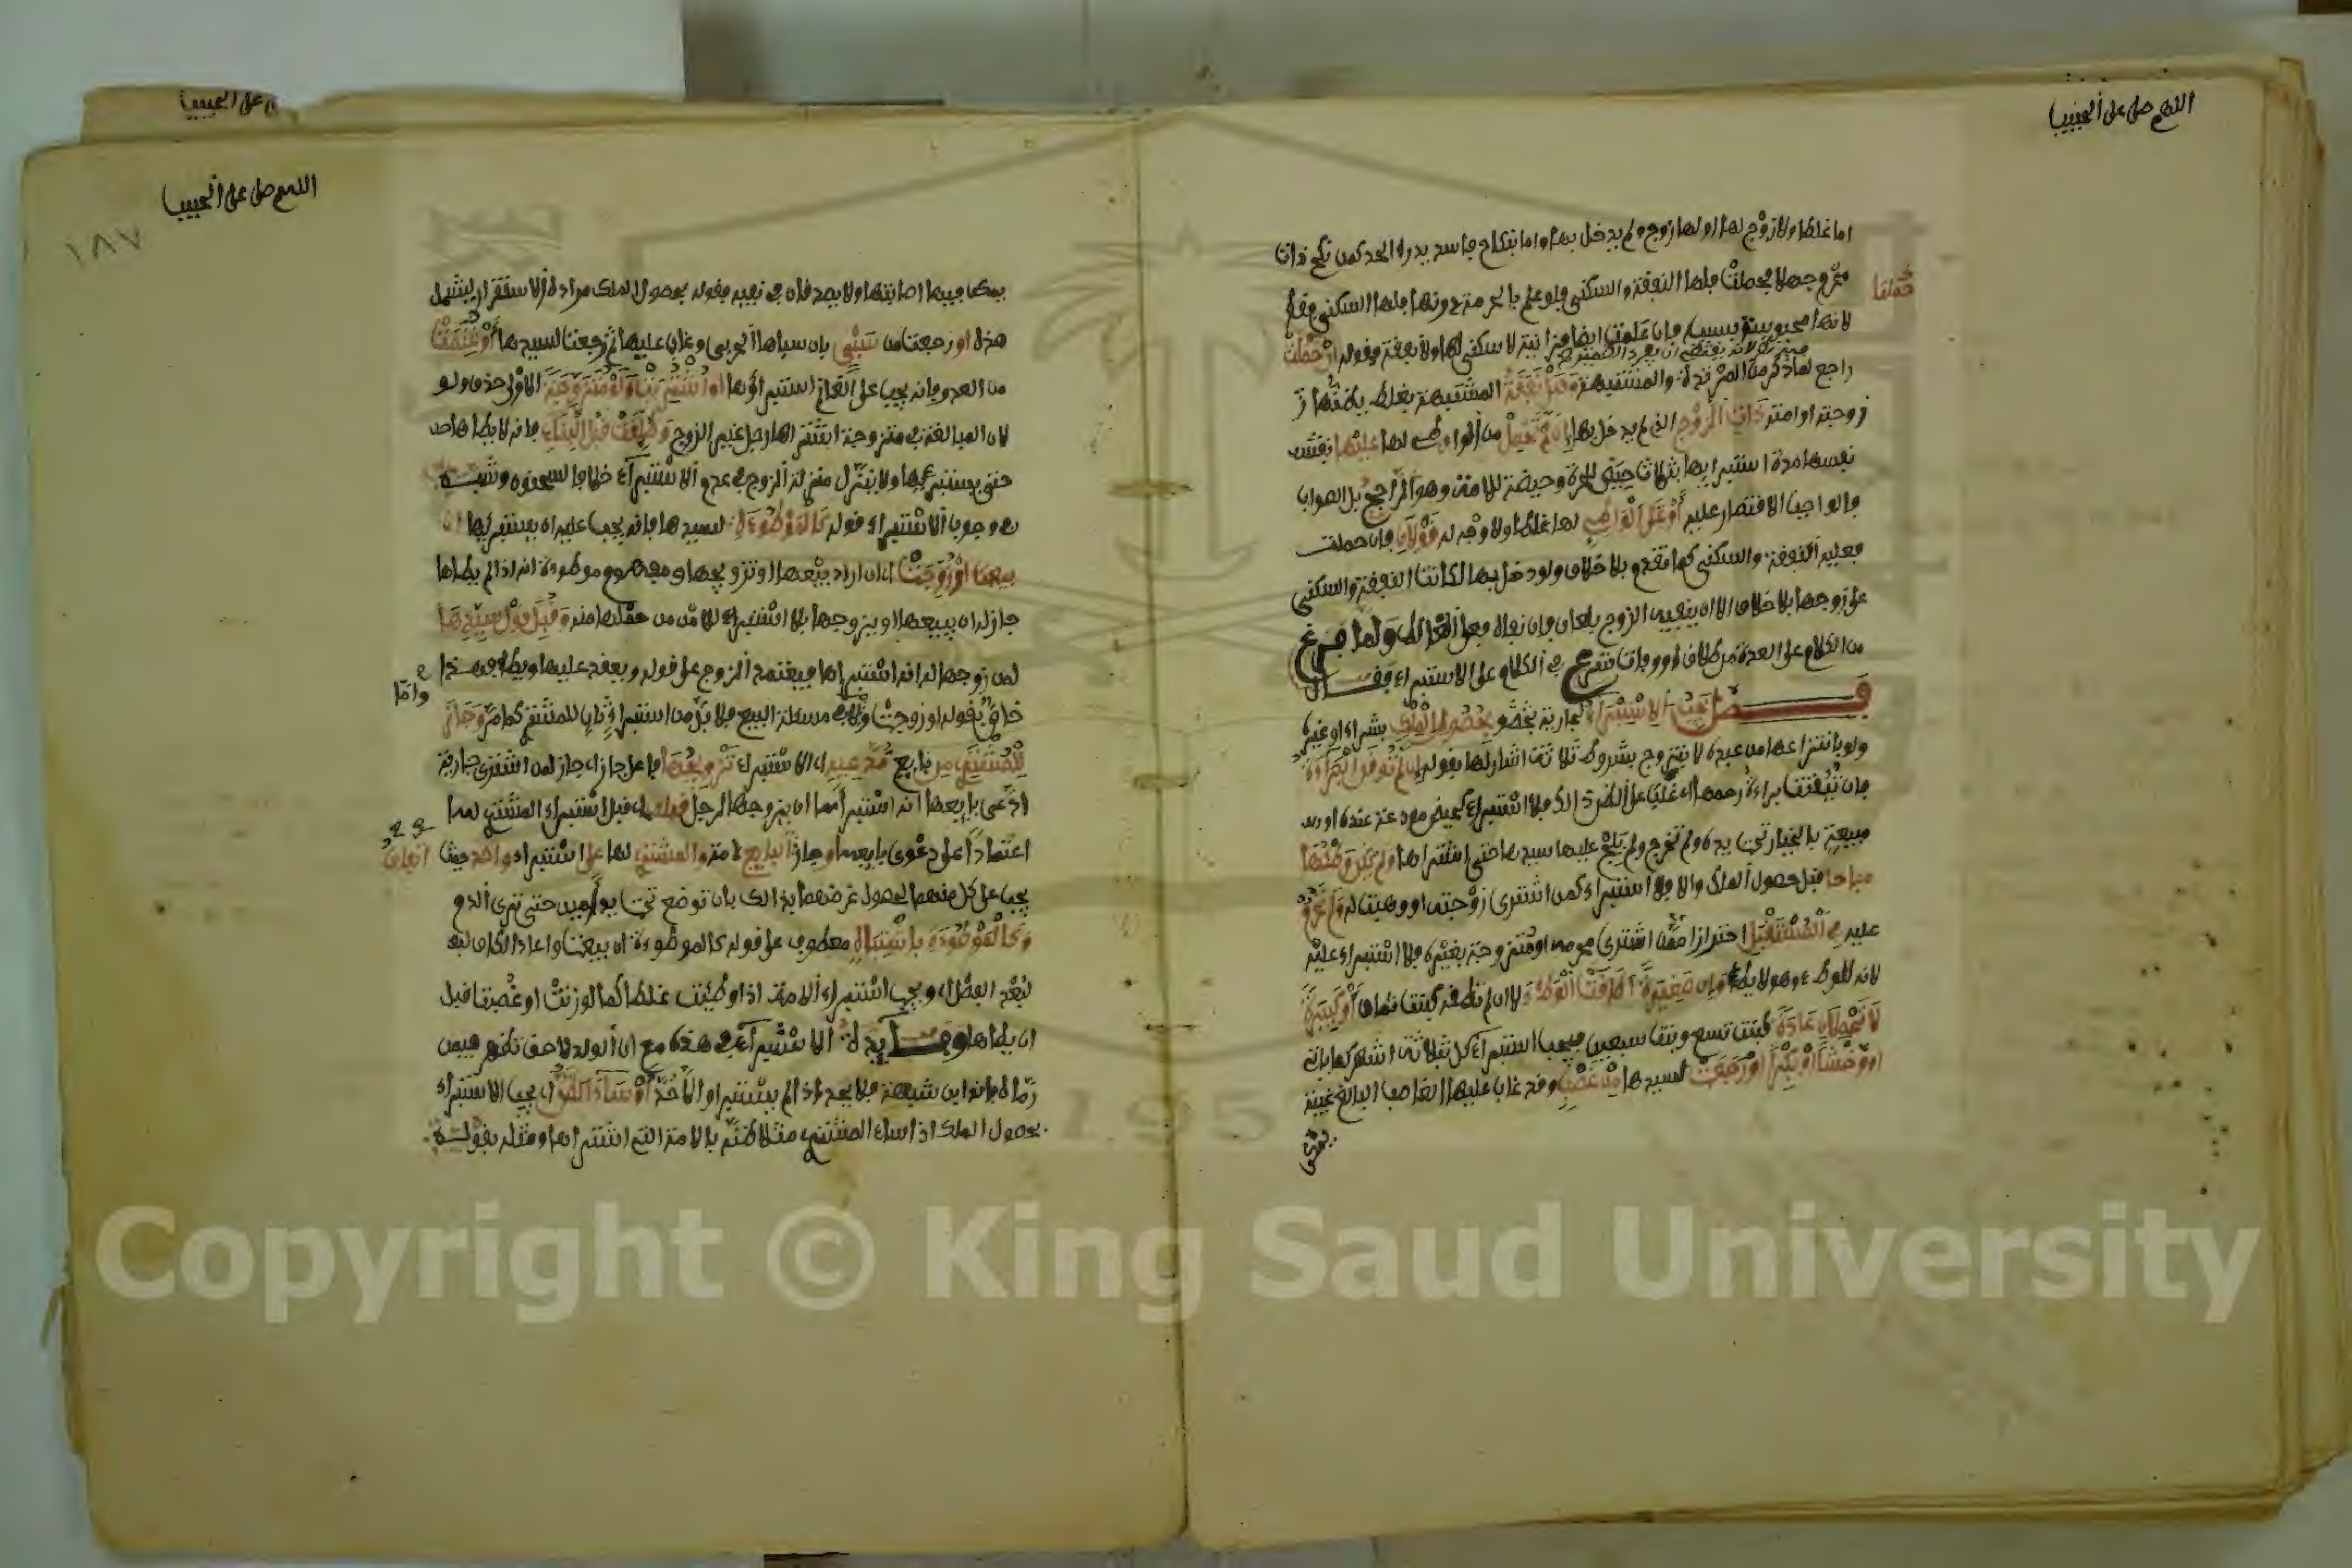 اللهم صل على الحبيب
اما غلطا ولا زوج لها او لها زوج ولم يدخل بها واما بنكاح فاسد يدرء الحد كمن نكح ذات
محرم جهلا فحملت فلها النفقة والسكنى فلو علم بالحرمة دونها فلها السكنى فقط
لانها محبوسة بسببه فان علمت ايضا فزانية لا سكنى لها ولا نفقة فقوله ان حملت
راجع لما ذكر من المرتدة والمشتبهة نفقة المشتبهة بغلط يظنها
زوجته او امته ذات الزوج الذي لم يدخل بها ان لم تحمل من الواطئ لها عليها نفقت
نفسها مدة استبرائها بثلاث حيض للحرة وحيضة للامة وهو الراجح بل الصواب
فالواجب الاقتصار عليه او على الواطئ لها غلطا ولا وجه له قولان فان حملت
فعليه النفقة والسكنى كما تقدم بلا خلاف ولو دخل بها لكانت النفقة والسكنى
على زوجها بلا خلاف الا ان ينفيه الزوج بلعان فان نفاه فعلى الغالط ولما فرغ
من الكلام على العدة من طلاق او وفات شرع في الكلام على الاستبراء فقال
فصل يجب الاستبراء لجارية بحصول الملك بشراء او غيره
ولو بانتزاعها من عبده لا بتزوج بشروط ثلاثة اشار لها بقوله ان لم توقن البراءة
فان تيقنت براءة رحمها غلبة على الظن فلا استبراء كحيض مودعة عنده او
مبيعة بالخيار تحت يده ولم تخرج ولم يلج عليها سيدها حتى اشتراها ولم يكن وطئها
مباحا قبل حصول الملك والا فلا استبراء كمن اشترى زوجته او وهبت له ولم تحرم
عليه في المستقبل احترازا ممن اشترى محرمه او متزوجة بغيره فلا استبراء عليه
لانه للوطء وهو لا يطأ وان صغيرة اطاقت الوطء لا ان لم تطقه كبنت ثمان او كبيرة
لا تحملان عادة كبنت تسع وبنت سبعين فيجب استبراء كل بثلاثة اشهر كما ياتي
او وخشا او بكرا او رجعت لسيدها من غصب وقد غاب عليها الغاصب البالغ غيبة
يمكن
حملت
اللهم صل على الحبيب
١٨٧
يمكن فيها اصابتها ولا يصدقان في نفيه فقوله بحصول الملك مراده الاستقرار ليشمل
هذه او رجعت من سبي بان سباها الحربي وغاب عليها ثم رجعت لسيدها او غنمت
من العدو فانه يجب على الغانم استبراؤها او اشتريت ولو متزوجة الاولى حذف ولو
لان المبالغة في متزوجة اشتراها رجل غير الزوج وطلقت قبل البناء فانه لا يطأها
حتى يستبرئها ولا ينزل منزلة الزوج في عدم الاستبراء خلافا لسحنون وشبه
في وجوب الاستبراء قوله كالموطوءة لسيدها فانه يجب عليه ان يستبرئها ان
بيعت او زوجت اي ان اراد بيعها او تزويجها ومفهوم موطوءة انه اذا لم يطأها
جاز له ان يبيعها او يزوجها بلا استبراء للامن من حملها منه وقبل قول سيدها
لمن زوجها له انه استبراها فيعتمد الزوج على قوله ويعقد عليها ويطأ وهذا
خاص بقوله او زوجت واما في مسئلة البيع فلا بد من استبراء ثان للمشتري كما مر وجاز
للمشتري من بائع مدعيه اي الاستبراء تزويجها فاعل جاز اي جاز لمن اشترى جارية
ادعى بايعها انه استبراها ان يزوجها لرجل قبله اي قبل استبراء المشتري لها
اعتمادا على دعوى بايعها وجاز اتفاق البايع لامة والمشتري لها على استبراء واحد حيث
يجب على كل منهما لحصول غرضهما بذالك بان توضع تحت يد امين حتى ترى الدم
وكالموطوءة باشتباه معطوف على قوله كالموطوءة ان بيعت واعاد الكاف
لبعد الفصل اي ويجب استبراء الامة اذا وطئت غلطا كما لو زنت او غصبت قبل
ان يطأها وفائدة الاستبراء في هذه مع ان الولد لاحق تظهر فيمن
رماه بانه ابن شبهة فلا يحد اذ لم يستبر والا حد او ساء الظن اي يجب الاستبراء
بحصول الملك اذا ساء المشتري مثلا ظنه بالامة التي اشتراها ومثله بقوله
واما
اتفاق